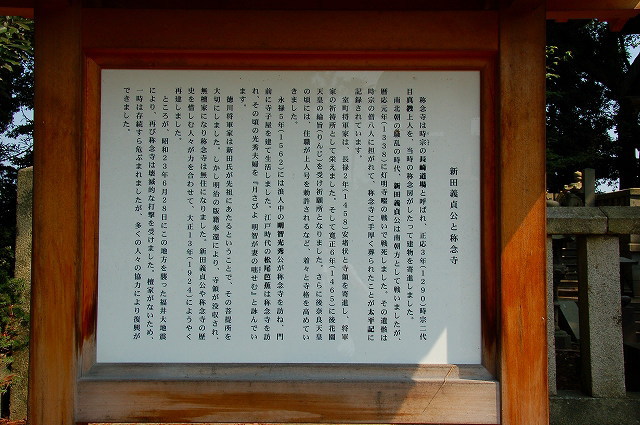 新田義貞公と称念寺
称念寺は時宗の長崎道場と呼ばれ、正応3年(1290)時宗二代
目真教上人を、当時の称念房がしたって建物を寄進しました。
南北朝の動乱の時代、新田義貞公は南朝方として戦いましたが、
暦応元年(1338)に灯明寺畷の戦いで戦死しました。その遺骸は
時宗の僧八人に担がれて、称念寺に手厚く葬られたことが太平記に
記録されています。
室町将軍家は、長禄2年(1458)安堵状と寺領を寄進し、将軍
家の祈祷所として栄えました。そして寛正6年(1465)に後花園
天皇の綸旨(りんじ)を受け祈願所となりました。さらに後奈良天皇
の頃には、住職が上人号を勅許されるなど、着々と寺格を高めてい
きました。
永禄5年(1562)には浪人中の明智光秀が称念寺を訪ね、門
前に寺子屋を建て生活しました。江戸時代の松尾芭蕉は称念寺を訪
れ、その頃の光秀夫婦を『月さびよ 明智が妻の咄せむ』と詠んでい
ます。
徳川将軍家は新田氏が先祖にあたるということで、その菩提所を
大切にしました。しかし明治の版籍奉還により、寺領が没収され、
無檀家になり称念寺は無住になりました。新田義貞公や称念寺の歴
史を惜しむ人々が力を合わせて、大正13年(1924)にようやく
再建しました。
ところが、昭和23年6月28日にこの地方を襲った福井大地震
により、再び称念寺は壊滅的な打撃を受けました。檀家がないため、
一時は存続すら危ぶまれましたが、多くの人々の協力により復興が
できました。